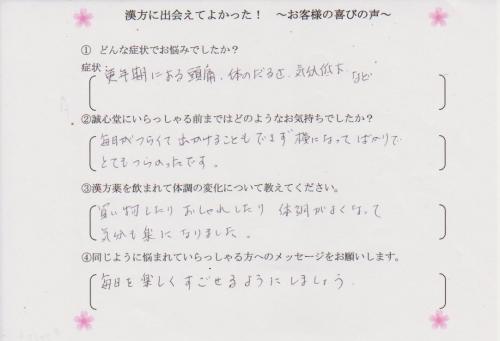 漢方に出会えてよかった！　～お客様の喜びの声～
① どんな症状でお悩みでしたか？
症状
更年期による頭痛、体のだるさ、気分低下 など
②誠心堂にいらっしゃる前まではどのようなお気持ちでしたか？
毎日がつらくて出かけることもできず横になってばかりで
とてもつらかったです。
③漢方薬を飲まれて体調の変化について教えてください。
買い物したりおしゃれしたり 体調がよくなって
気分も楽になりました。
④同じように悩まれていらっしゃる方へのメッセージをお願いします。
毎日を楽しくすごせるようにしましょう。